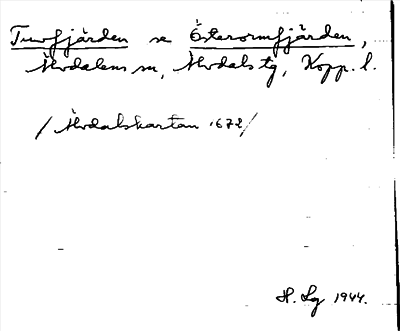 Turfjärden se Österormfjärden,
Älvdalens sn, Älvdals tg, Kopp. l.
/Älvdalskartan 1672/
H. Lg 1944.